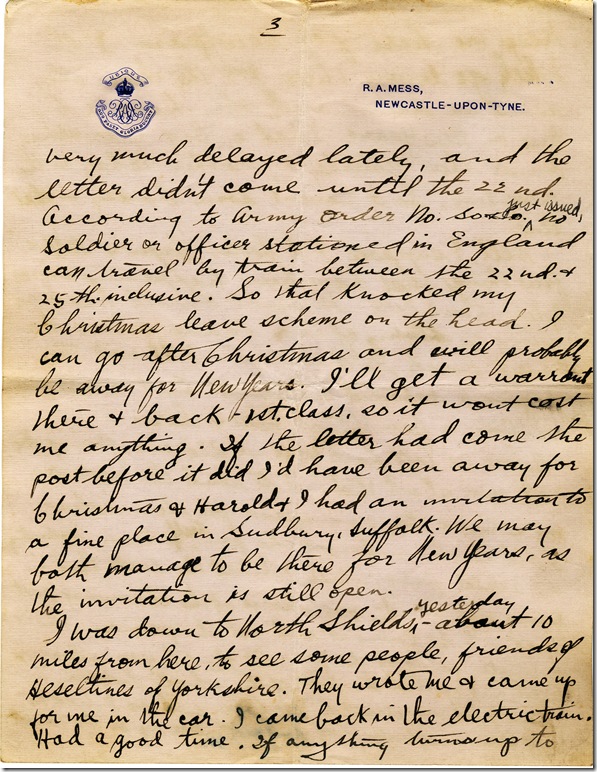 3
UBIQUE
R. A. MESS,
NEWCASTLE-UPON-TYNE.
very much delayed lately, and the
letter didn't come until the 22nd.
According to Army order No. so & so. just issued, no
soldier or officer stationed in England
can travel by train between the 22nd. &
25th. inclusive. So that knocked my
Christmas leave scheme on the head. I
can go after Christmas and will probably
be away for New Years. I'll get a warrant
there & back 1st. class, so it wont cost
me anything. If the letter had come the
post before it did I'd have been away for
Christmas & Harold & I had an invitation to
a fine place in Sudbury, Suffolk. We may
both manage to be there for New Years, as
the invitation is still open.
I was down to North Shields, yesterday - about 10
miles from here, to see some people, friends of
Heseltines of Yorkshire. They wrote me & came up
for me in the car. I came back in the electric train.
Had a good time. If anything turns up to